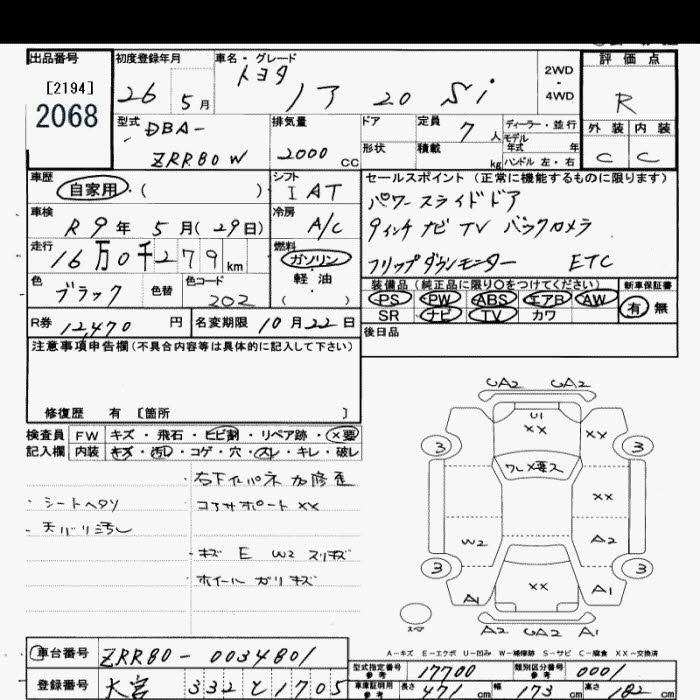 出品番号
[2194]
2068
初度登録年月
26 5月
車名・グレード
トヨタ
ノア 20 Si
2WD
・
4WD
評価点
R
外装 内装
C C
型式
DBA-
ZRR80W
排気量
2000 cc
ドア
形状
定員
7人
積載
kg
ディーラー・並行
モデル
年式 年
ハンドル 左・右
車歴
自家用・( )
シフト
I AT
車検
R9年 5月(29日)
冷房
A/C
走行
16万0千279km
燃料
ガソリン
軽油
( )
色
ブラック
色替
色コード
202
R券
12,470 円
名変期限 10月22日
セールスポイント (正常に機能するものに限ります)
パワースライドドア
9インチナビ TV バックカメラ
フリップダウンモニター ETC
装備品(純正品に限り○をつけてください)
PS PW ABS エアB AW
SR ナビ TV カワ
新車保証書
有 無
後日品
注意事項申告欄(不具合内容等は具体的に記入して下さい)
修復歴 有 〔箇所 〕
検査員
記入欄
FW キズ・飛石・ヒビ割・リペア跡・×要
内装 キズ・汚レ・コゲ・穴・スレ・キレ・破レ
・シートヘタリ
・天バリ汚レ
・右下インパネ加修歪
コアサポート XX
・キズ E W2 スリキズ
ホイール ガリキズ
UA2 UA2
U1
XX
XX
3 3
ワレX要ス
XX
W2
A2
3 3
XX
A1 A1
A2 UA2 A1
スペア
A-キズ E-エクボ U-凹み W-補修跡 S-サビ C-腐食 XX-交換済
車台番号 ZRR80-0034801
登録番号 大宮 332 と 1705
型式指定番号
参考
17700
類別区分番号
参考
0001
車庫証明用
参考
長さ 471cm 幅 173cm 高さ 182cm